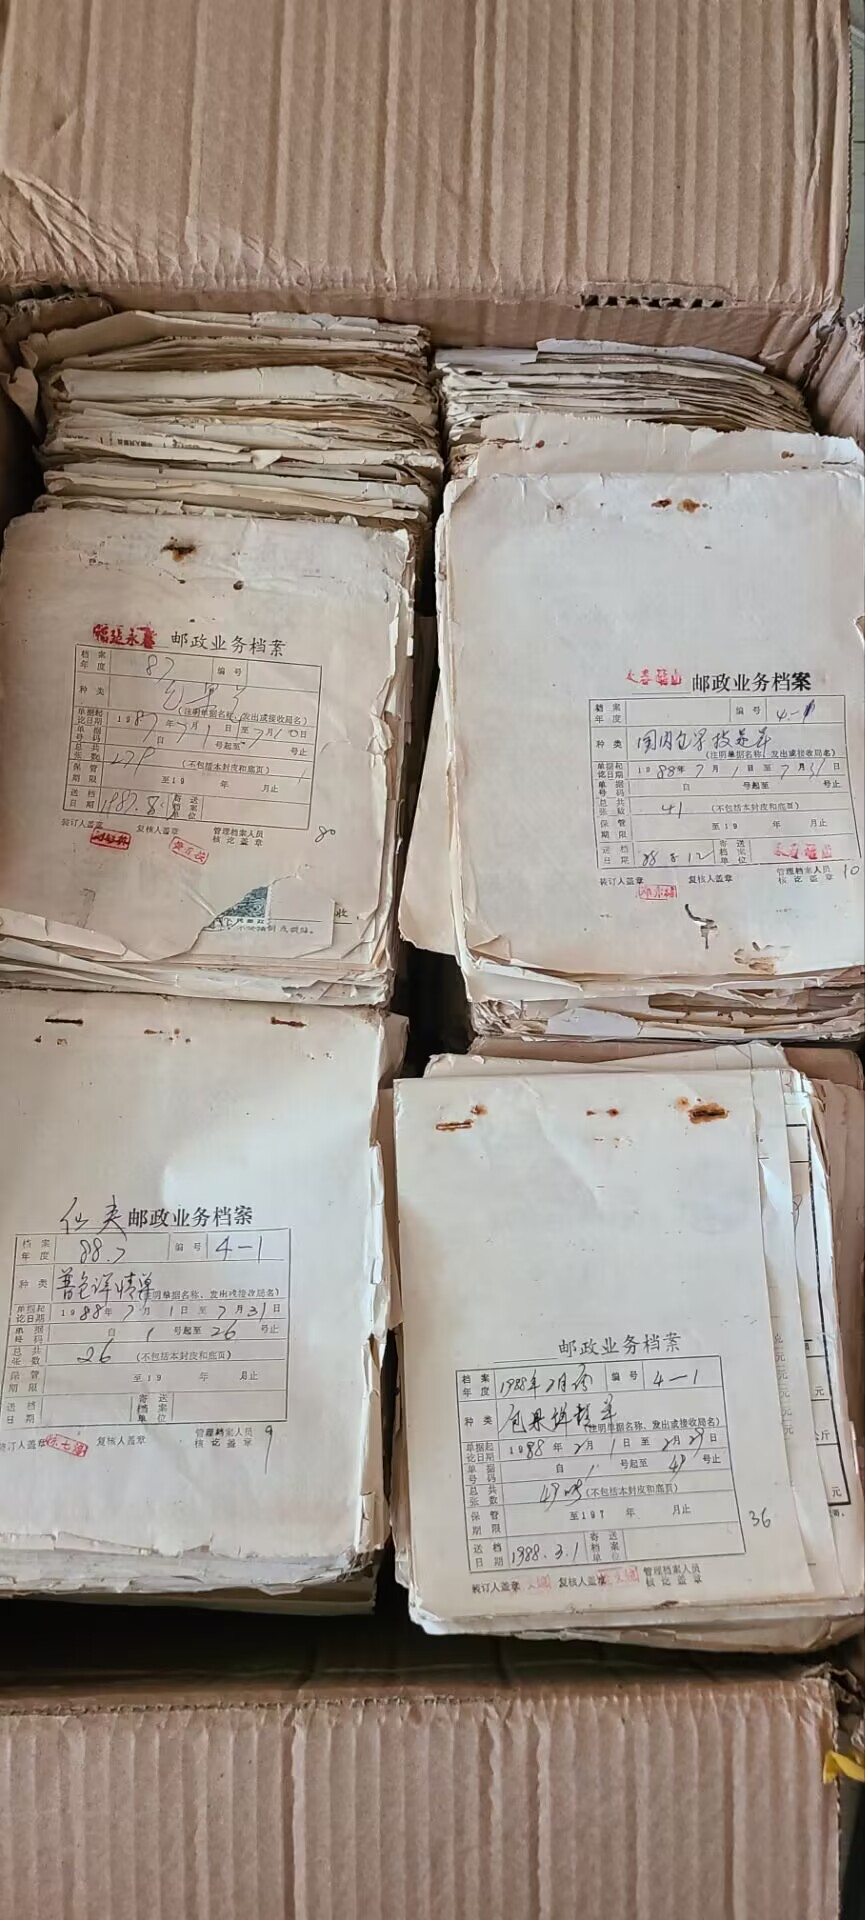 福建永春 邮政业务档案
档案年度 87 编号
种类
(注明单据名称、发出或接收局名)
单据起讫日期 1987年7月1日至7月10日
单据号码 自 号起至 号止
总共张数 279 (不包括本封皮和底页)
保管期限 至19 年 月止
送档日期 1987.8. 寄送档案单位
装订人盖章 复核人盖章 管理档案人员核讫盖章
80
收
邮政业务档案
档案年度 编号 4-1
种类 国内包裹
(注明单据名称、发出或接收局名)
单据起讫日期 1988年7月1日至7月31日
单据号码 自 号起至 号止
总共张数 41 (不包括本封皮和底页)
保管期限 至19 年 月止
送档日期 88 8 12 寄送档案单位
装订人盖章 复核人盖章 管理档案人员核讫盖章
10
仙夹 邮政业务档案
档案年度 88.7 编号 4-1
种类 普包详情单
(注明单据名称、发出或接收局名)
单据起讫日期 1988年7月1日至7月31日
单据号码 自 1 号起至 26 号止
总共张数 26 (不包括本封皮和底页)
保管期限 至19 年 月止
送档日期 寄送档案单位
装订人盖章 复核人盖章 管理档案人员核讫盖章
9
邮政业务档案
档案年度 1988年2月 编号 4-1
种类 包裹详情单
(注明单据名称、发出或接收局名)
单据起讫日期 1988年2月1日至2月29日
单据号码 自 1 号起至 49 号止
总共张数 49 (不包括本封皮和底页)
保管期限 至197 年 月止
送档日期 1988.3.1 寄送档案单位
装订人盖章 复核人盖章 管理档案人员核讫盖章
36
元
公斤
元